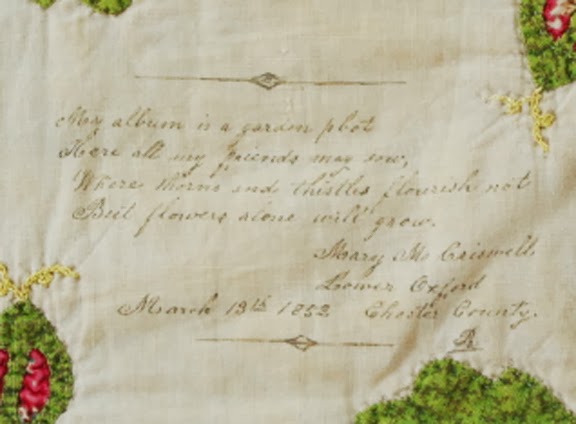 My album is a garden plot
Here all my friends may sow,
Where thorns and thistles flourish not
But flowers alone will grow.
Mary Mc Criswell,
Lower Oxford
March 13th 1852 Chester County.